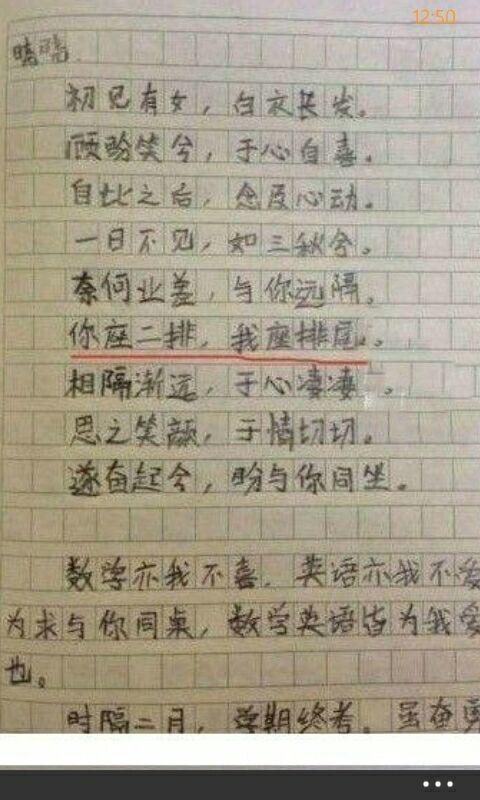 12:50
初见有女，白衣长发。
顾盼笑兮，于心自喜。
自比之后，念及心动。
一日不见，如三秋兮。
奈何业差，与你远隔。
你座二排，我座排尾。
相隔渐远，于心凄凄
思之笑颜，于情切切。
遂奋起兮，盼与你同坐。
数学亦我不喜，英语亦我不爱
为求与你同桌，数学英语皆为我爱
也。
时隔二月，学期终考。虽奋